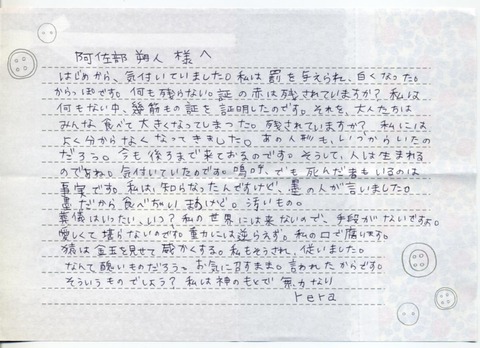 阿佐部 朔人 様へ
はじめから、気付いていました。私は罰を与えられ、白くなった。
からっぽです。何も残らない証の赤は残されていますか? 私は
何もない中、幾筋もの証を証明したのです。それを、大人たちは
みんな食べて大きくなってしまった。残されていますか? 私には
よく分からなくなってきました。あの人形も、いつからいたの
だろう。今も後ろまで来ておるのです。そうして、人は生まれる
のであね。気付いていたのです。鳴呼、でも死んだ者もいるのは
事実です。私は、知らなったんですけど、墨の人が言いました。
墨だから食べがいい まずいと。汚いもの。
葬儀はいったい、いつ? 私の世界には来ないので、手段がないですよ。
愛しくて堪らないのです。重力には逆らえず。私の口で腐ります。
猿は金玉を見せて威かくする。私もそうされ、従いました。
なんて醜いものだろう。お気に召すまま。言われたからです。
そういうものでしょう? 私は神のもとで 無力なり
rera